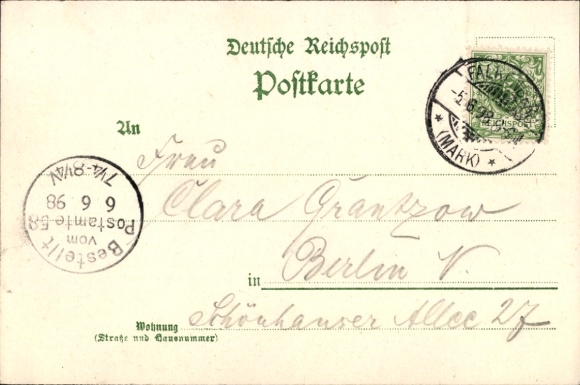 Deutsche Reichspost
Postkarte
REICHSPOST
(MARK)
An
Frau
Clara Grantzow
in Berlin N.
Schönhauser Allee 27
Wohnung
(Straße und Hausnummer)
Bestellt
vom
Postamte 58
6 6. 98
7¼-8½V